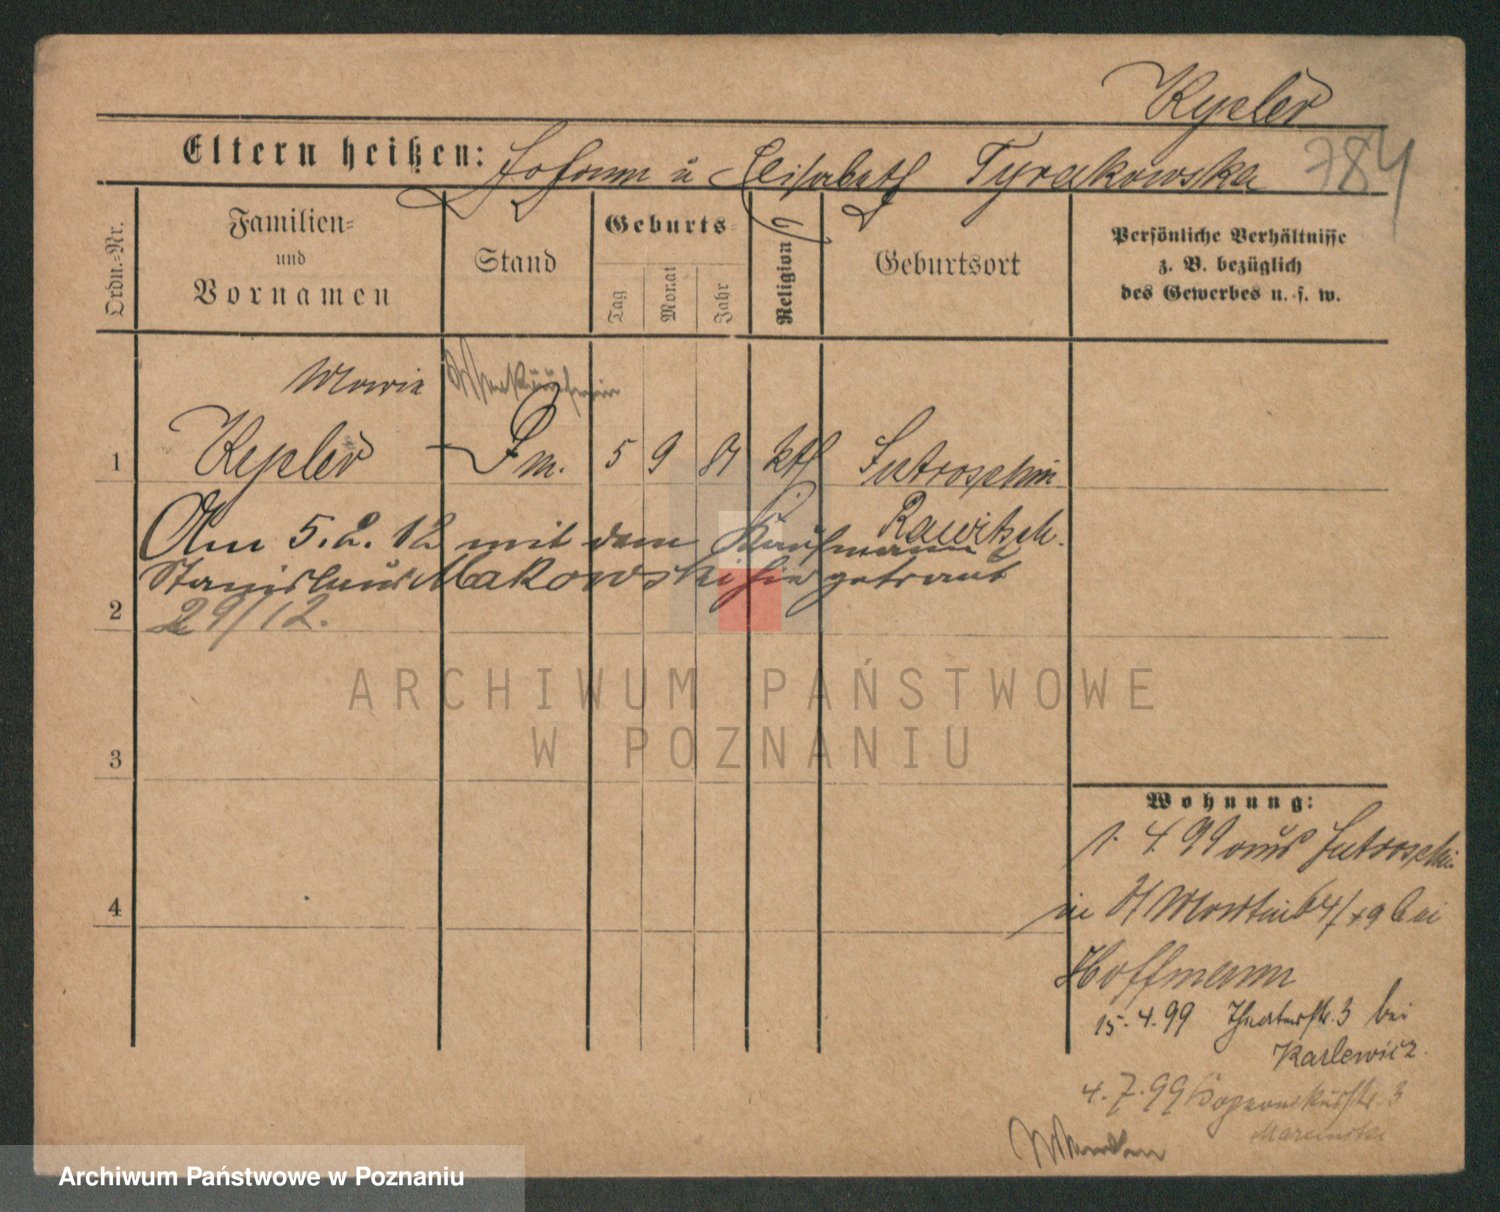 Kezler
Eltern heißen: Johann u Elisabeth Tyrakowska 784
Ordn.-Nr.
Familien-
und
Vornamen
Stand
Geburts-
Tag
Monat
Jahr
Religion
Geburtsort
Persönliche Verhältnisse
z. B. bezüglich
des Gewerbes u. s. w.
Marie
1 Kezler 5 9 81 kth Jutroschin
Rawitsch.
Am 5.2.12 mit dem Kaufmann
Stanislaus Makowski hier getraut
2 29/12.
ARCHIWUM PAŃSTWOWE
W POZNANIU
3
Wohnung:
1. 4. 99 aus Jutroschin
4 in St Martin 64/ bei
Hoffmann
15.4.99 Theaterstr. 3 bei
Karlewicz.
4.7.99 3
Marcinski
Archiwum Państwowe w Poznaniu